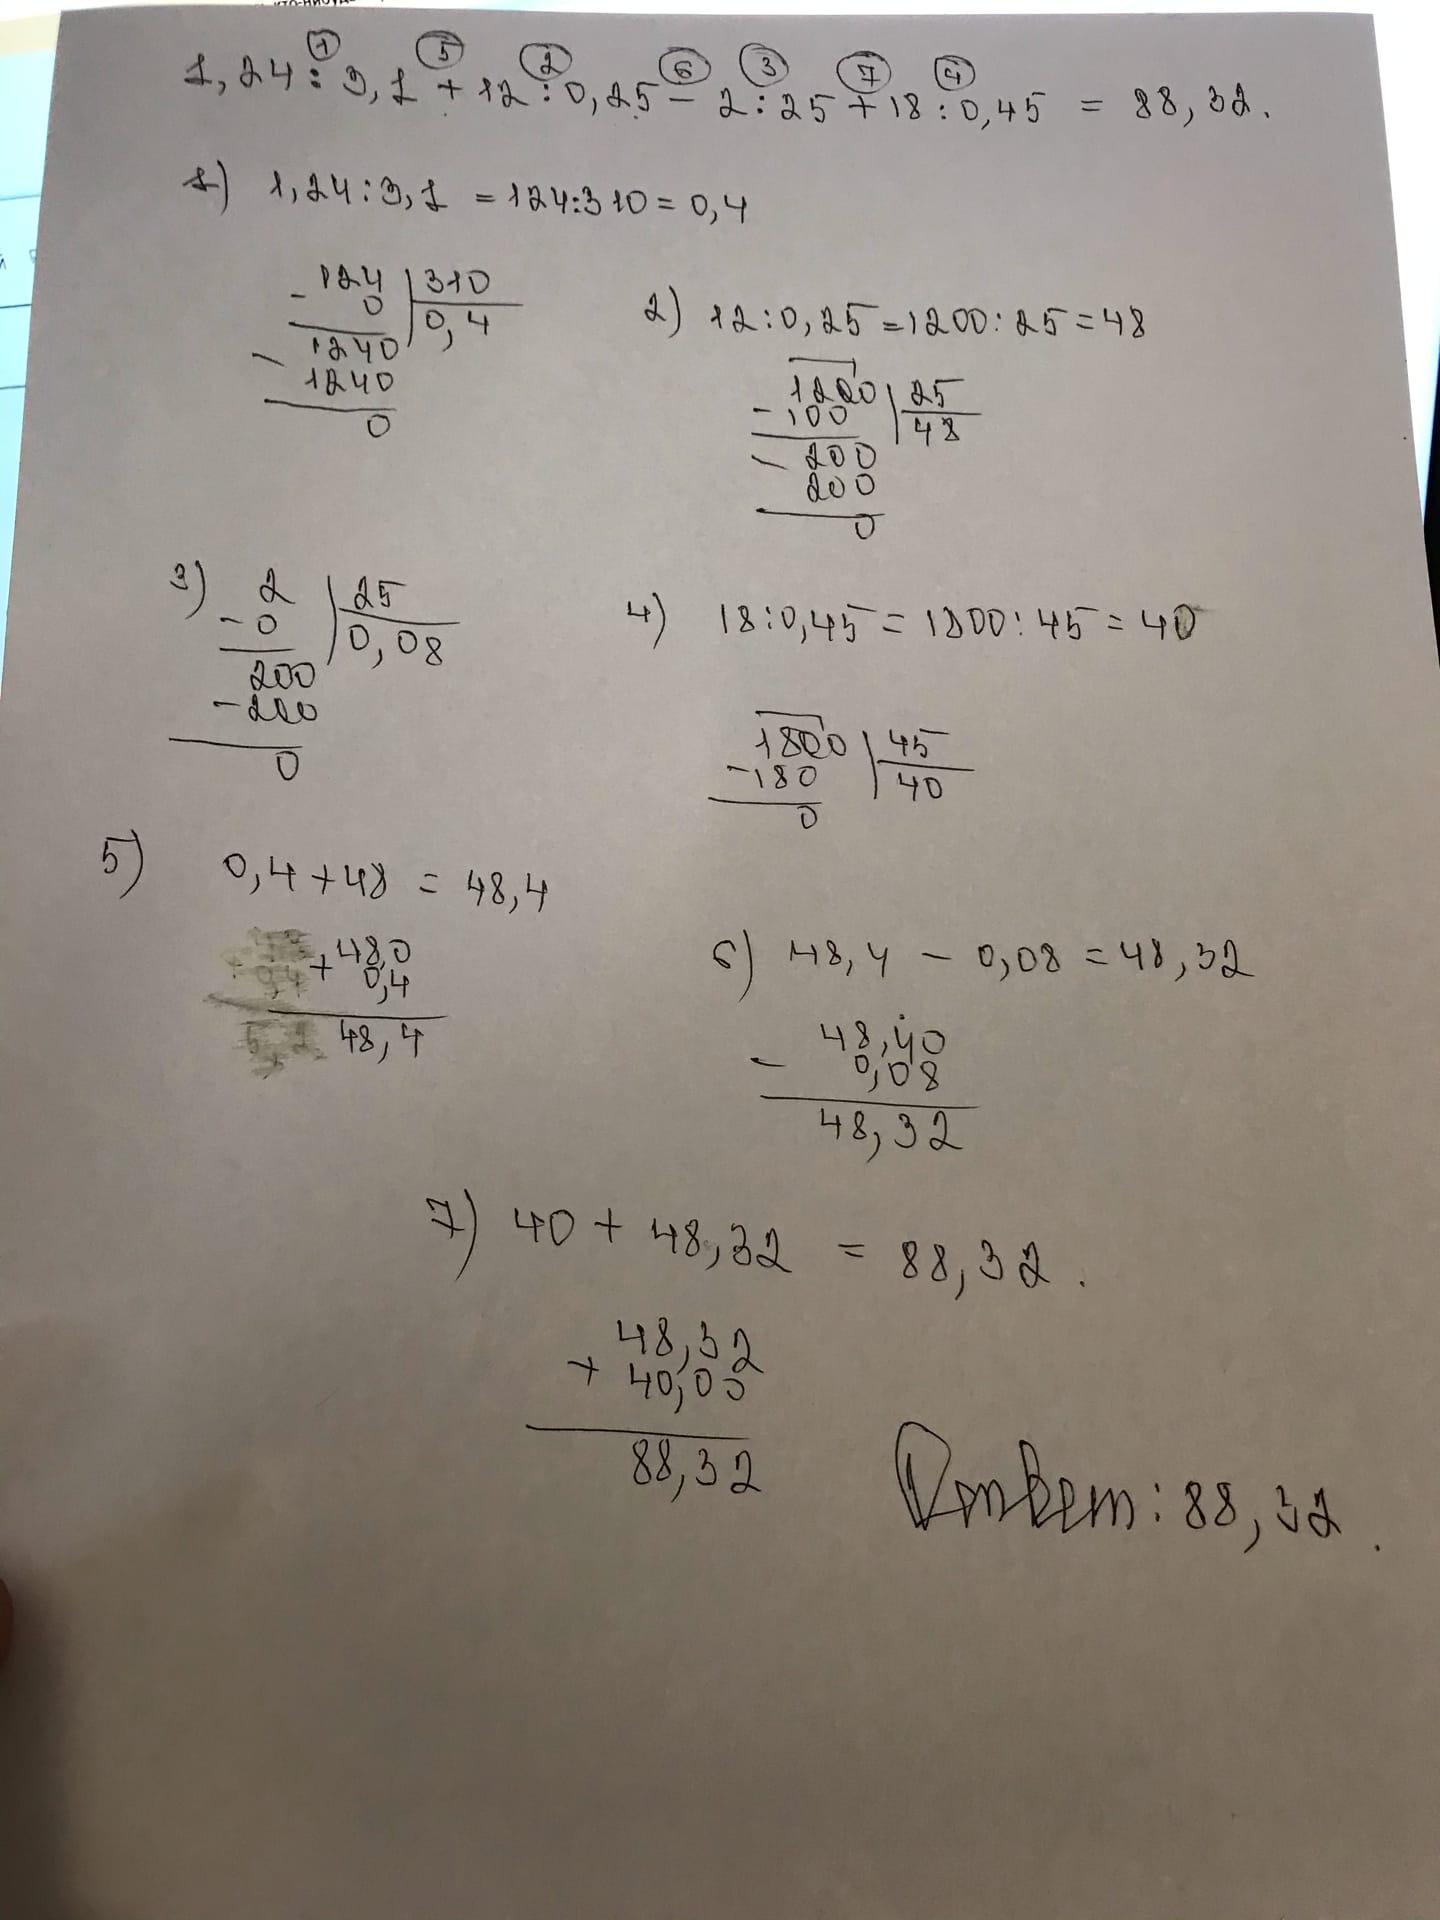 ① ⑤ ② ⑥ ③ ⑦ ④
1,24 : 3,1 + 12 : 0,25 - 2 : 25 + 18 : 0,45 = 88,32.
1) 1,24 : 3,1 = 124:310 = 0,4
-124 | 310
0 | 0,4
-1240
1240
0
2) 12 : 0,25 = 1200 : 25 = 48
1200 | 25
-100 | 48
-200
200
0
3) 2 | 25
-0 | 0,08
200
-200
0
4) 18 : 0,45 = 1800 : 45 = 40
1800 | 45
-180 | 40
0
5) 0,4 + 48 = 48,4
+48,0
0,4
48,4
6) 48,4 - 0,08 = 48,32
48,40
- 0,08
48,32
7) 40 + 48,32 = 88,32.
48,32
+ 40,00
88,32
Ответ: 88,32.